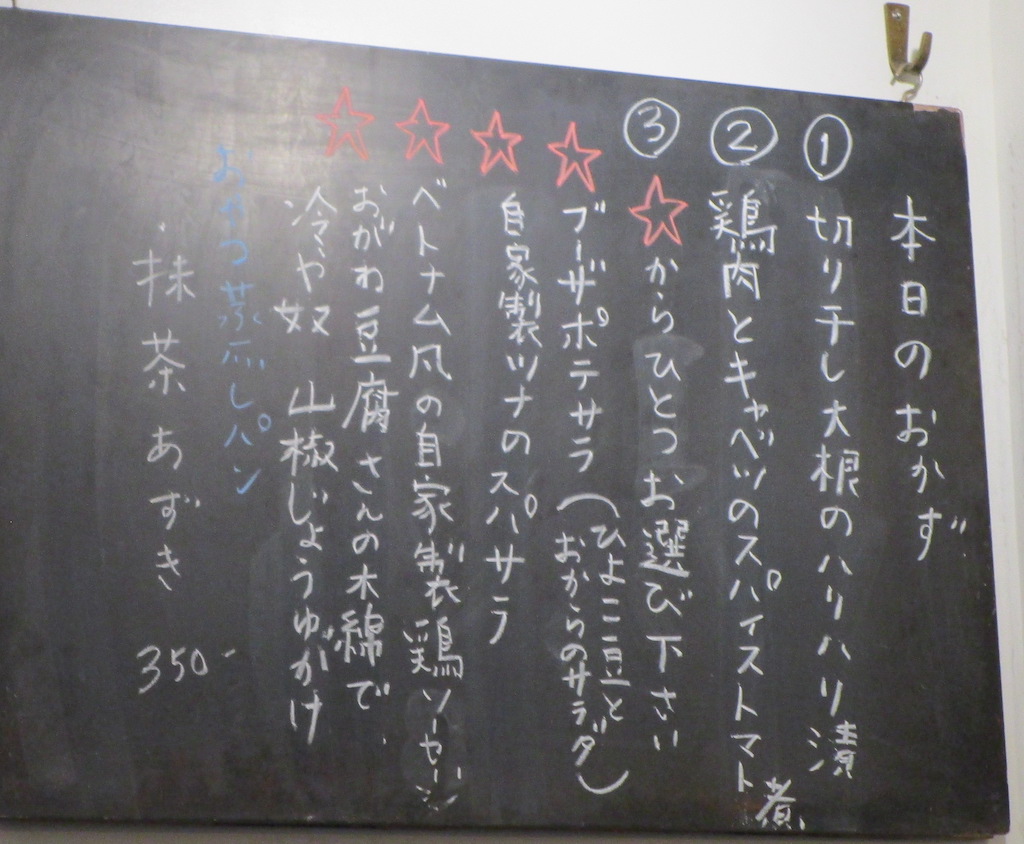 本日のおかず
① 切り干し大根のハリハリ漬
② 鶏肉とキャベツのスパイストマト煮
③ ☆からひとつお選び下さい
☆ ブーザポテサラ(ひよこ豆と
おからのサラダ)
☆ 自家製ツナのスパサラ
☆ ベトナム风の自家製鶏ソーセージ
☆ おがわ豆腐さんの木綿で
冷や奴 山椒じょうゆがけ
おやつ蒸しパン
・抹茶あずき 350-